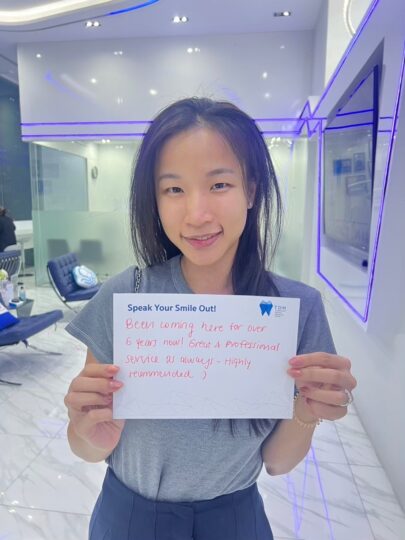 Speak Your Smile Out!
Been coming here for over
6 years now! Great & Professional
service as always - Highly
recommended :)